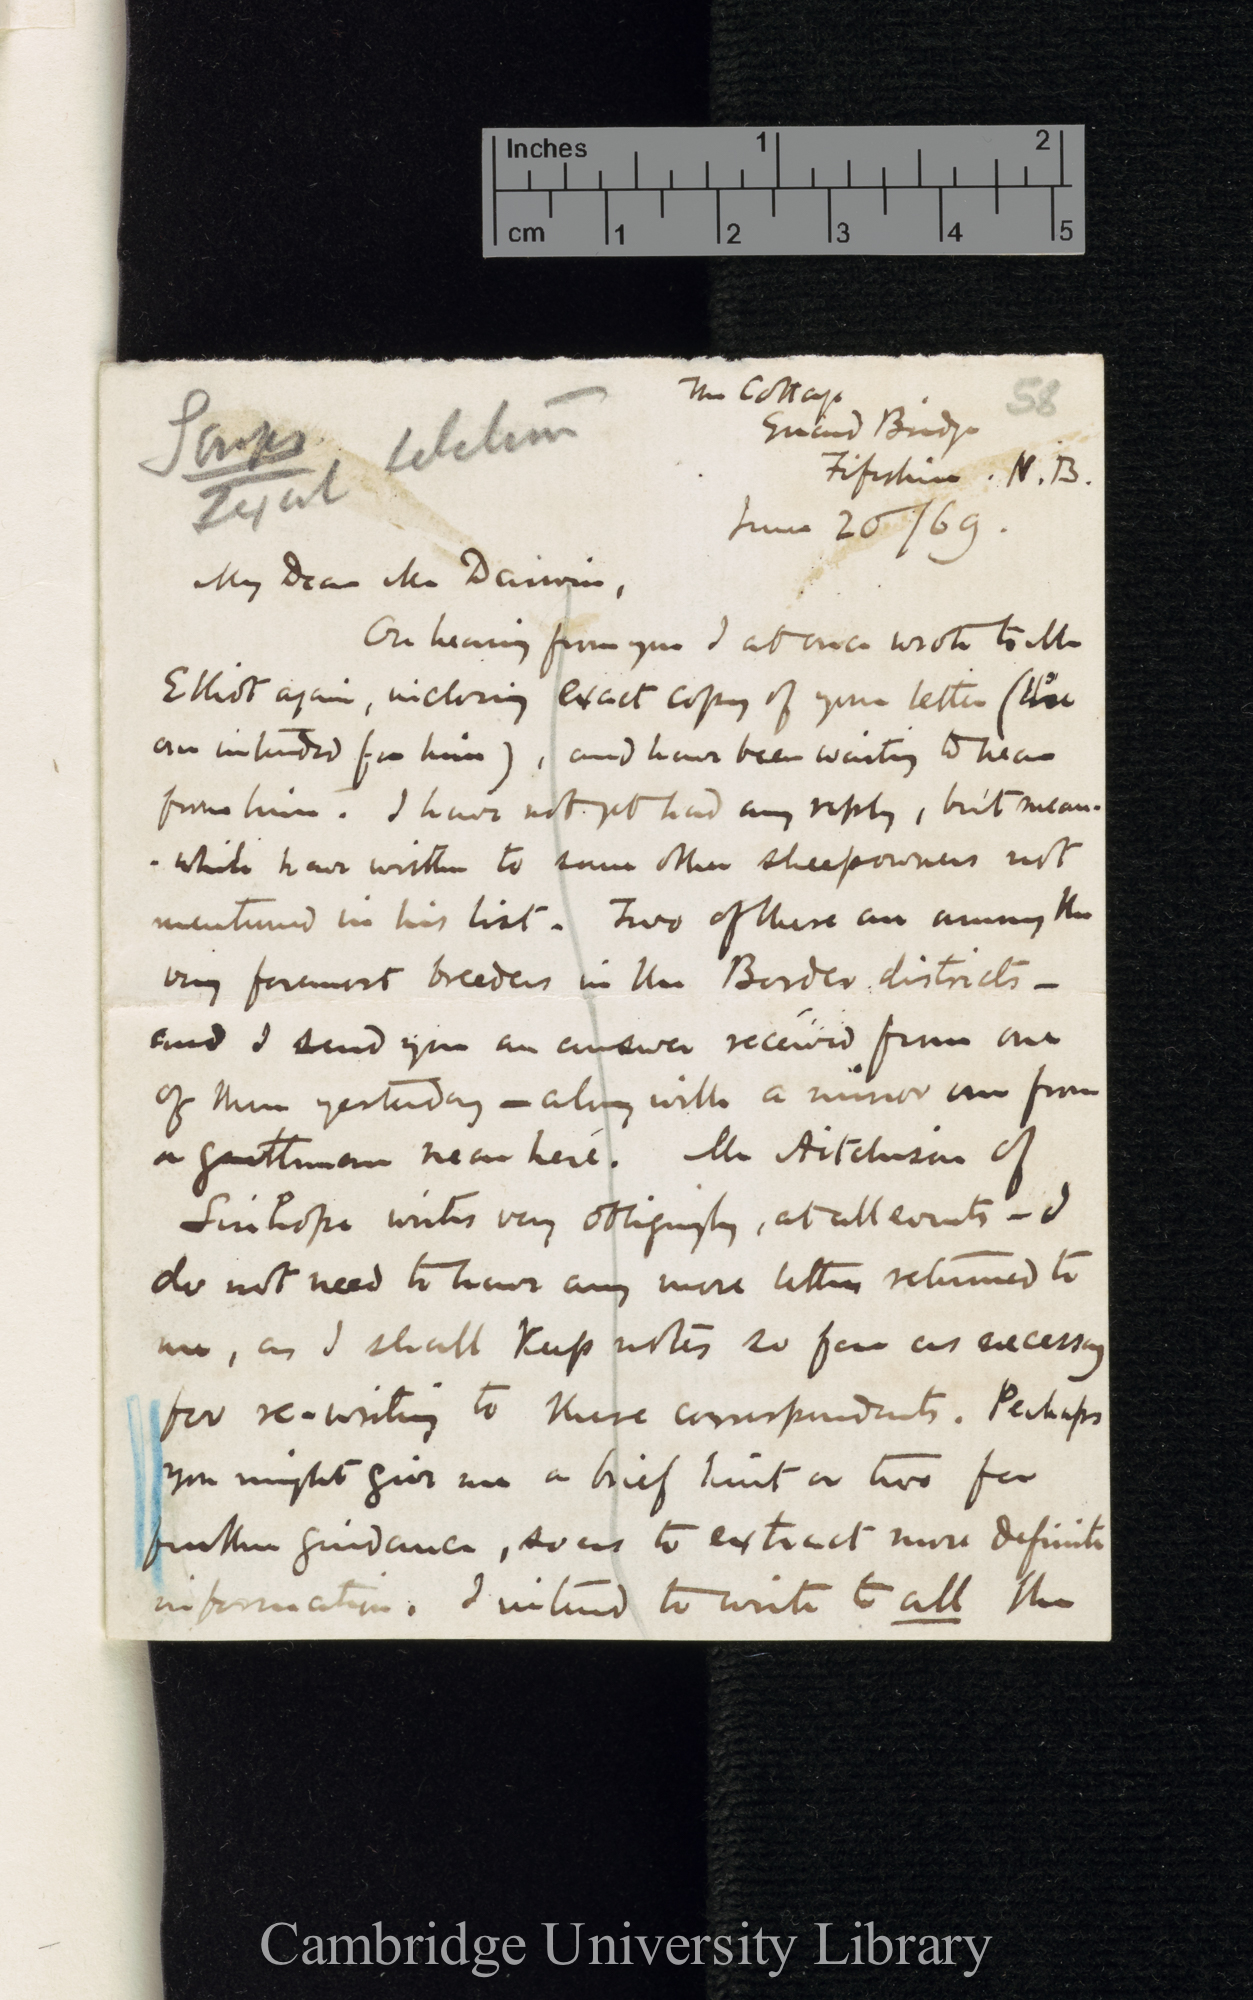 Inches 1 2
cm 1 2 3 4 5
58
The Cottage
Guard Bridge
Fifeshire. N.B.
June 20/69.
Sexual selection
My Dear Mr Darwin,
On hearing from you I at once wrote to Mr
Elliot again, inclosing exact copy of your letter (the
one intended for him), and have been waiting to hear
from him. I have not yet had any reply, but mean-
-while have written to some other sheepowners not
mentioned in his list. Two of these are among the
very foremost breeders in the Border districts –
and I send you an answer received from one
of them yesterday – along with a minor one from
a gentleman near here. Mr Aitchison of
Linhope writes very obligingly, at all events – I
do not need to have any more letters returned to
me, as I shall Keep notes so far as necessary
for re-writing to these correspondents. Perhaps
you might give me a brief hint or two for
further guidance, so as to extract more definite
information. I intend to write to all the
Cambridge University Library